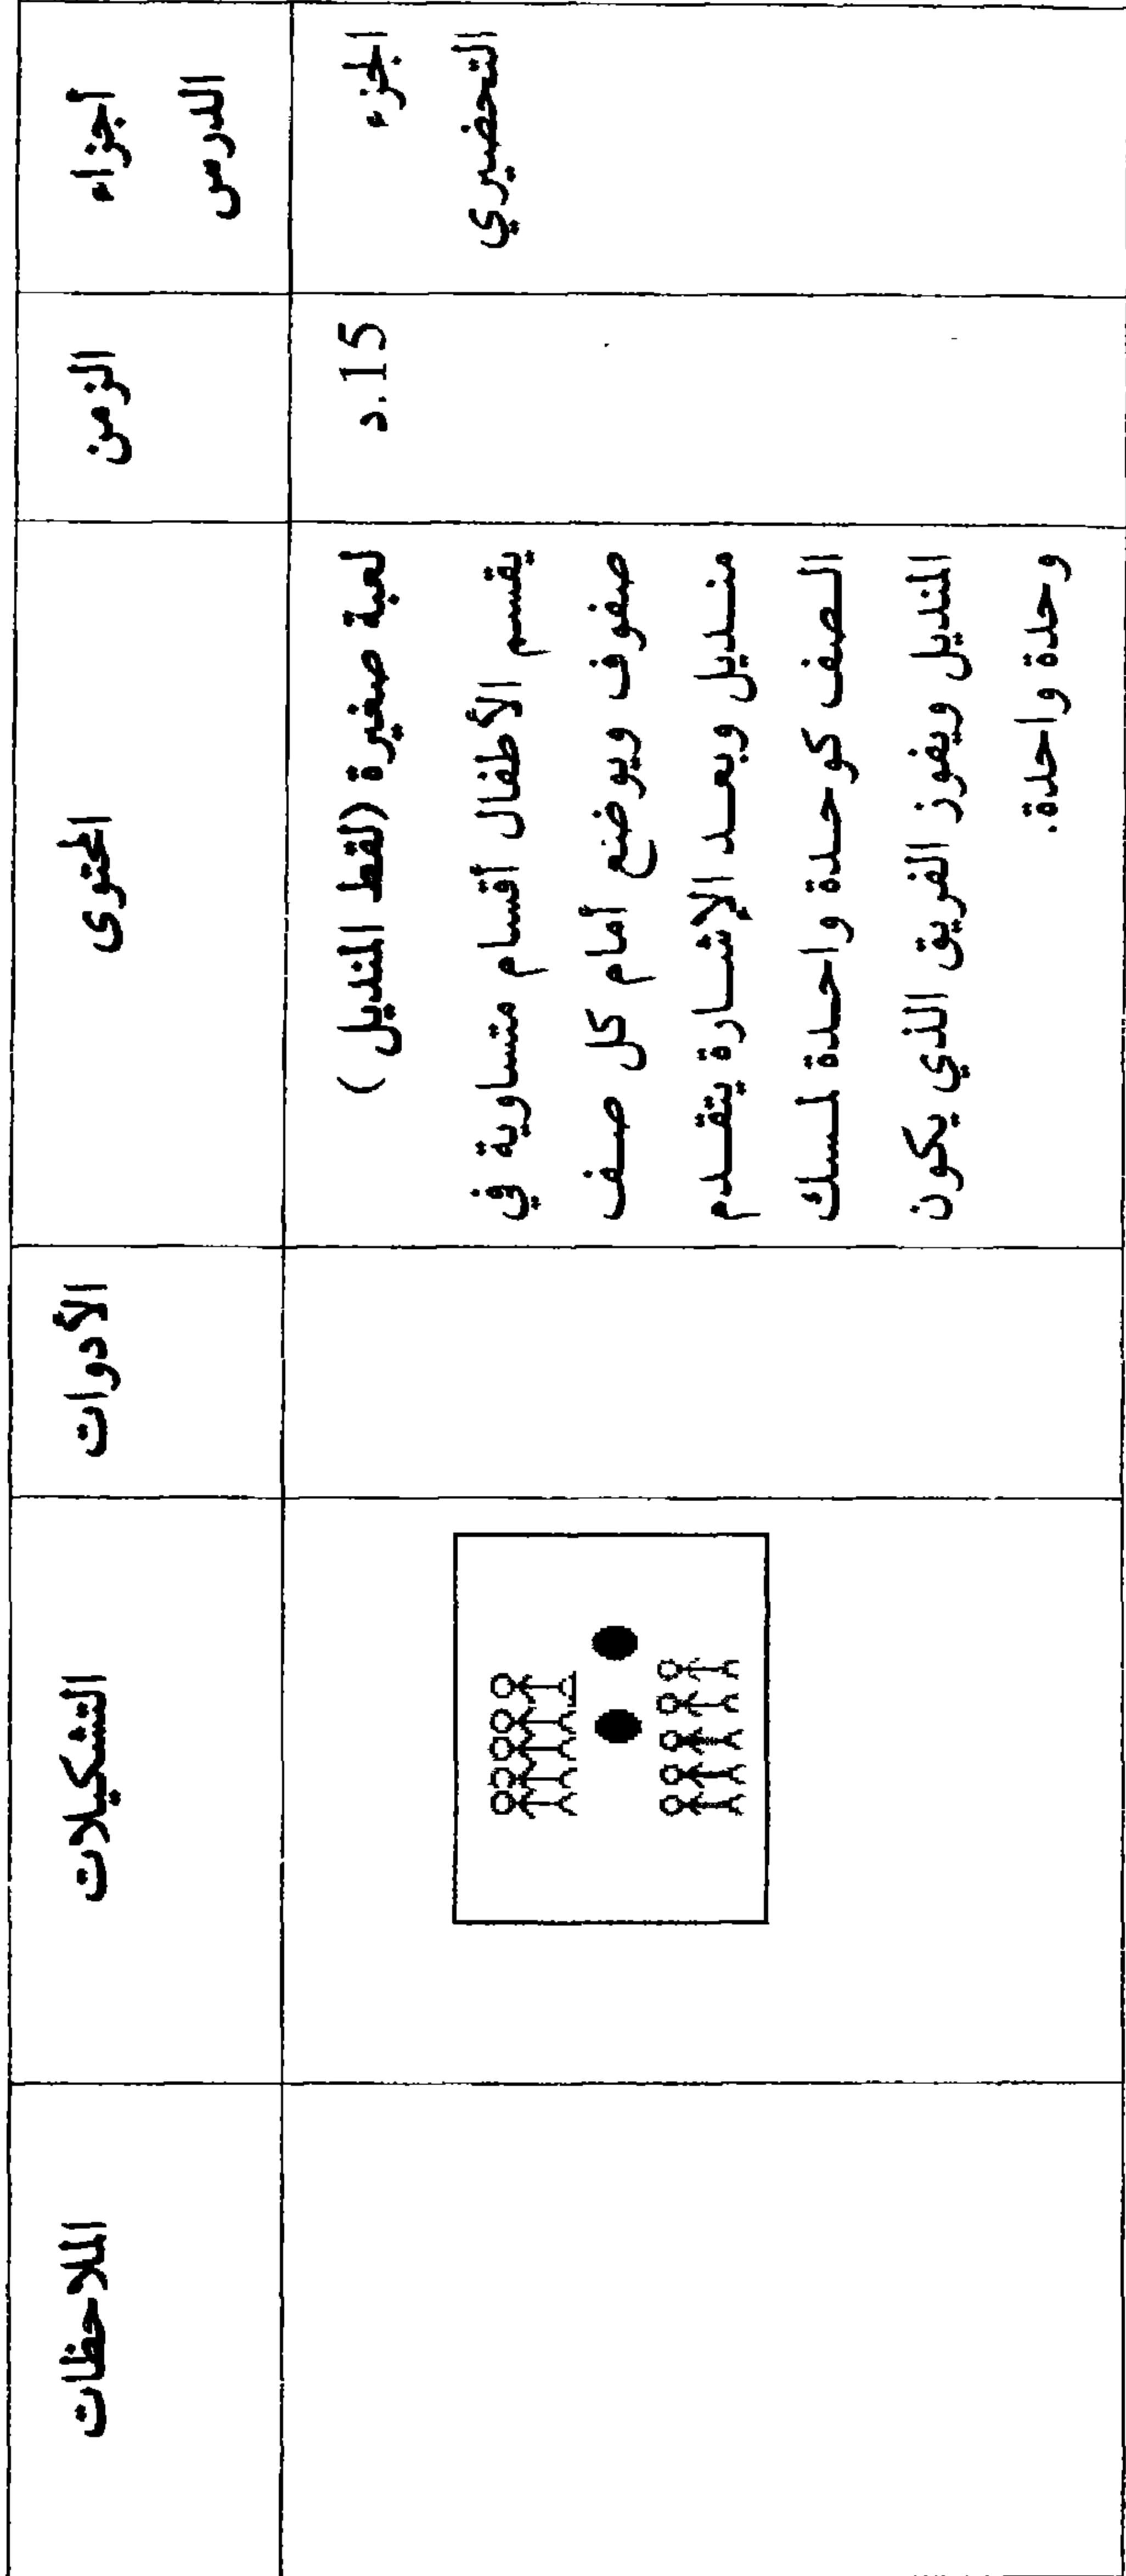 أجزاء
الدرس
الزمن
المحتوى
الأدوات
التشكيلات
الملاحظات
الجزء
التحضيري
15.د
لعبة صغيرة (لقط المنديل )
يقسم الأطفال أقسام متساوية في
صفوف ويوضع أمام كل صف
منديل وبعد الإشارة يتقدم
الصف كوحدة واحدة لمسك
المنديل ويفوز الفريق الذي يكون
وحدة واحدة.